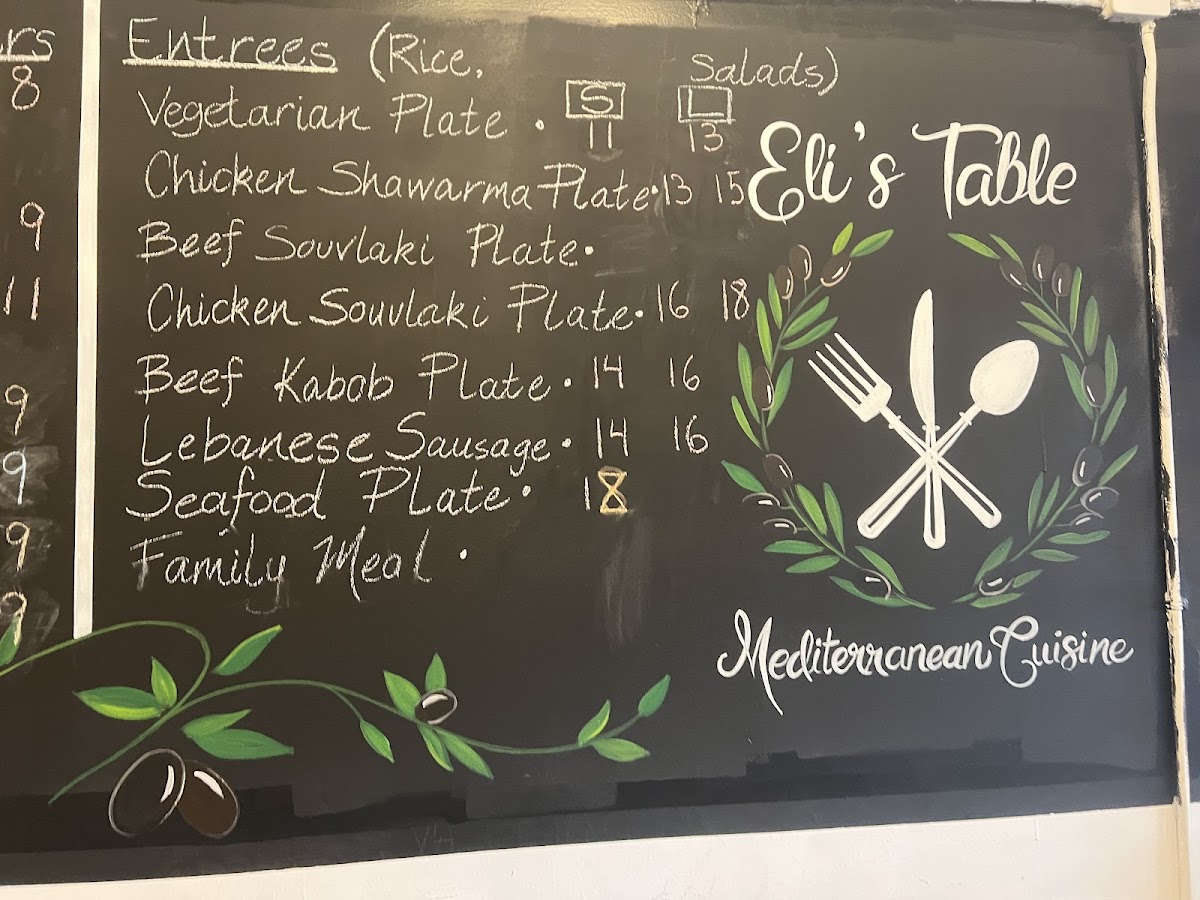 rs
8
9
11
9
9
9
9
Entrees (Rice, Salads)
S L
Vegetarian Plate . 11 13
Chicken Shawarma Plate · 13 15
Beef Souvlaki Plate ·
Chicken Souvlaki Plate · 16 18
Beef Kabob Plate · 14 16
Lebanese Sausage · 14 16
Seafood Plate · 18
Family Meal ·
Eli's Table
Mediterranean Cuisine